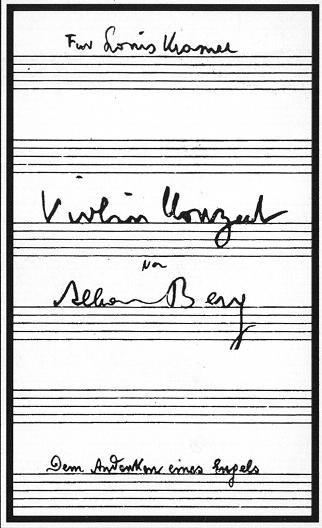 Für Louis Krasner
Violinkonzert
von
Alban Berg
Dem Andenken eines Engels